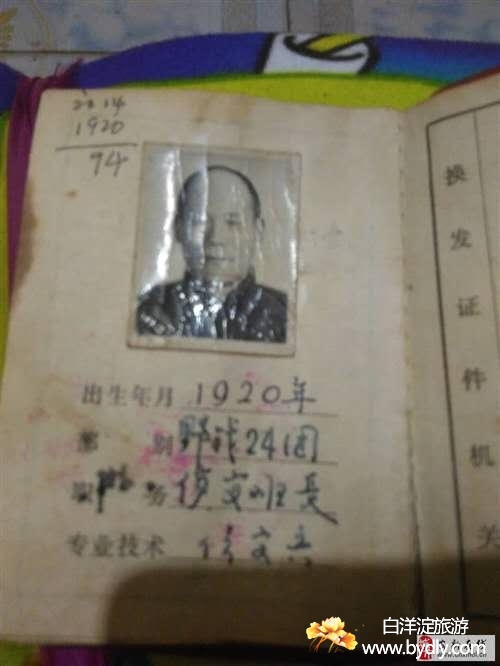 2014
1920
94
出生年月 1920年
部别 野战24团
职务 侦察班长
专业技术 侦察兵
换发证件机关
白洋淀旅游
www.bydly.com